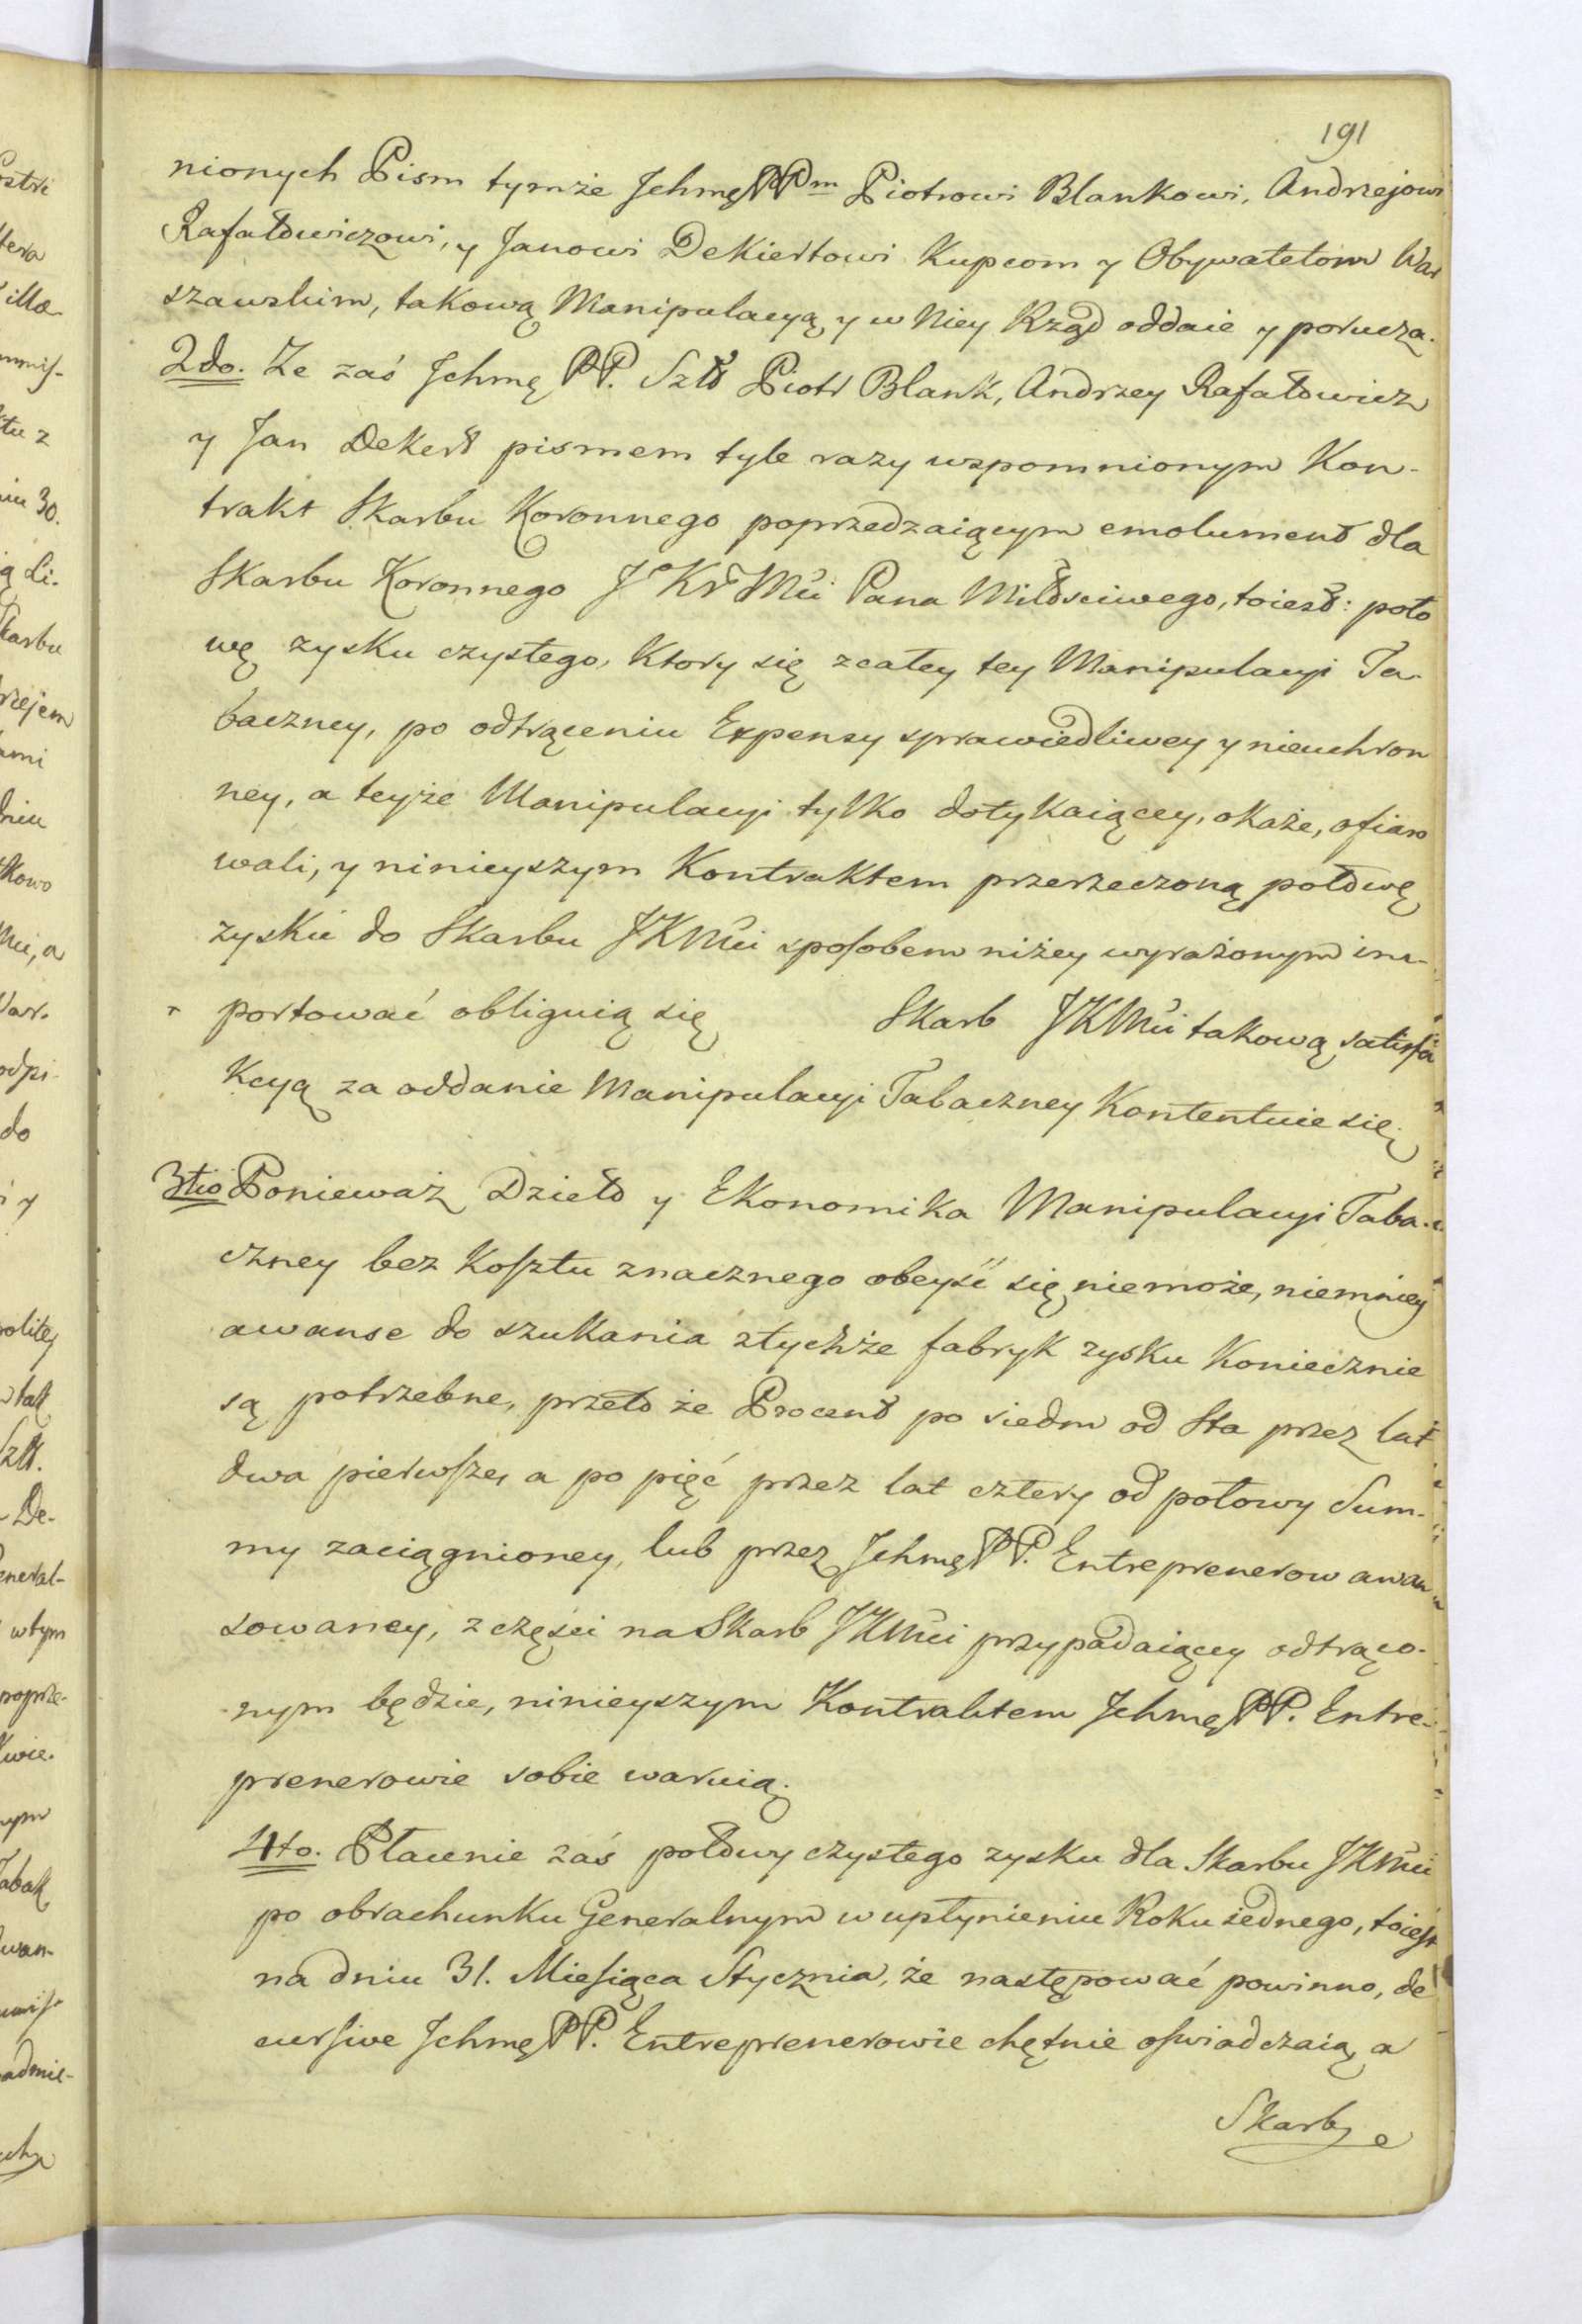 191
nionych Pism tymże Jchmę PPm Piotrowi Blankowi, Andrzejowi
Rafałowiczowi, y Janowi Dekiertowi Kupcom y Obywatelom War
szawskim, takową Manipulacyą y w Niey Rząd oddaie y porucza.
2do. Ze zaś Jchmę PP. Szlt Piotr Blank, Andrzey Rafałowicz
y Jan Dekert pismem tyle razy wspomnionym Kon-
trakt Skarbu Koronnego poprzedzaiącym emolument dla
Skarbu Koronnego J Kr Mći Pana Miłościwego, toiest: poło
wę zysku czystego, Ktory się zcałey tey Manipulacyi Ta-
baczney, po odtrąceniu Expensy sprawiedliwey y nieuchron
ney, a teyże Manipulacyi tylko dotykaiącey, okaże, ofiaro
wali, y ninieyszym Kontraktem przerzeczoną połowę
zysku do Skarbu JKMći sposobem niżey wyrażonym im-
portować obliguią się Skarb JKMći takową satisfa
Kcyą za oddanie Manipulacyi Tabaczney Kontentuie się.
3tio Ponieważ Dzieło y Ekonomika Manipulacyi Taba-
czney bez Kosztu znacznego obeyść się niemoże, niemniey
awanse do szukania ztychże fabryk zysku Koniecznie
są potrzebne, przeto że Procent po siedm od Sta przez lat
dwa pierwsze, a po pięć przez lat cztery od połowy Sum-
my zaciągnioney, lub przez Jchmę PP. Entreprenerow awan
sowaney, z części na Skarb JKMći przypadaiącey odtrąco-
nym będzie, ninieyszym Kontraktem Jchmę PP. Entre-
prenerowie sobie waruią.
4to. Płacenie zaś połowy czystego zysku dla Skarbu JKMći
po obrachunku Generalnym w upłynieniu Roku iednego, toiest
na dniu 31. Miesiąca Stycznia, że następować powinno, de
cursive Jchmę PP. Entreprenerowie chętnie oświadczaią, a
Skarb